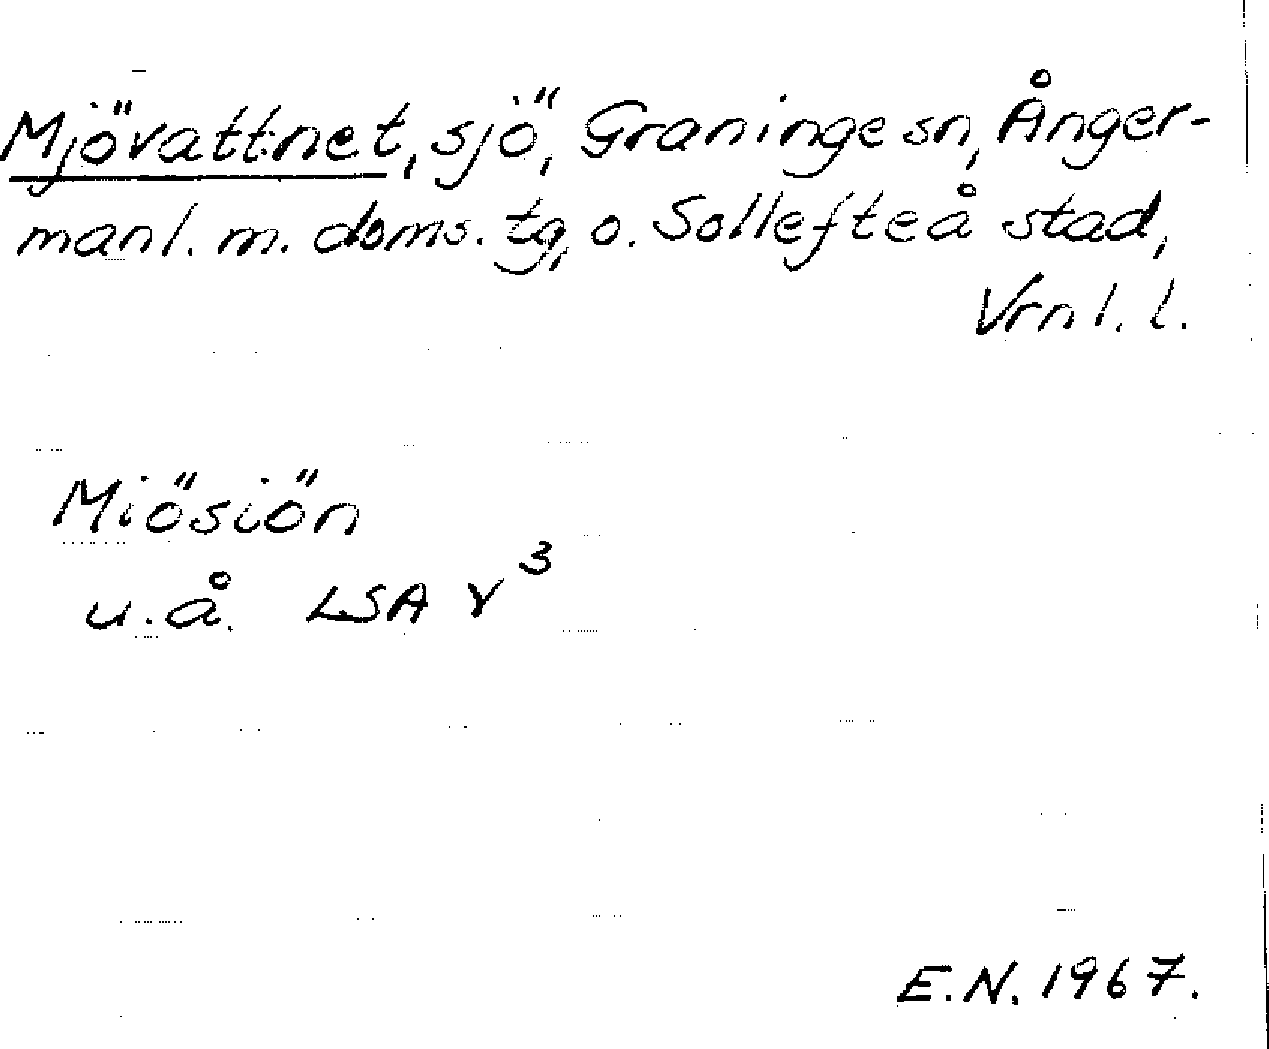 Mjövattnet, sjö, Graninge sn, Ånger-
manl. m. doms. tg, o. Sollefteå stad,
Vrnl. l.
Miösiön
u.å. LSA Y³
E.N. 1967.